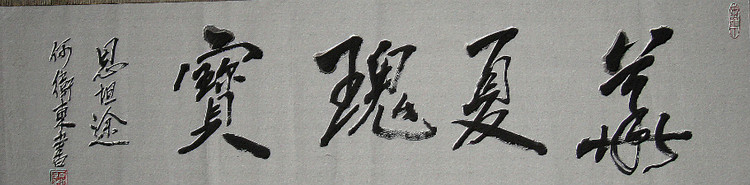 華夏瑰寶
恩坦途
何衛東書